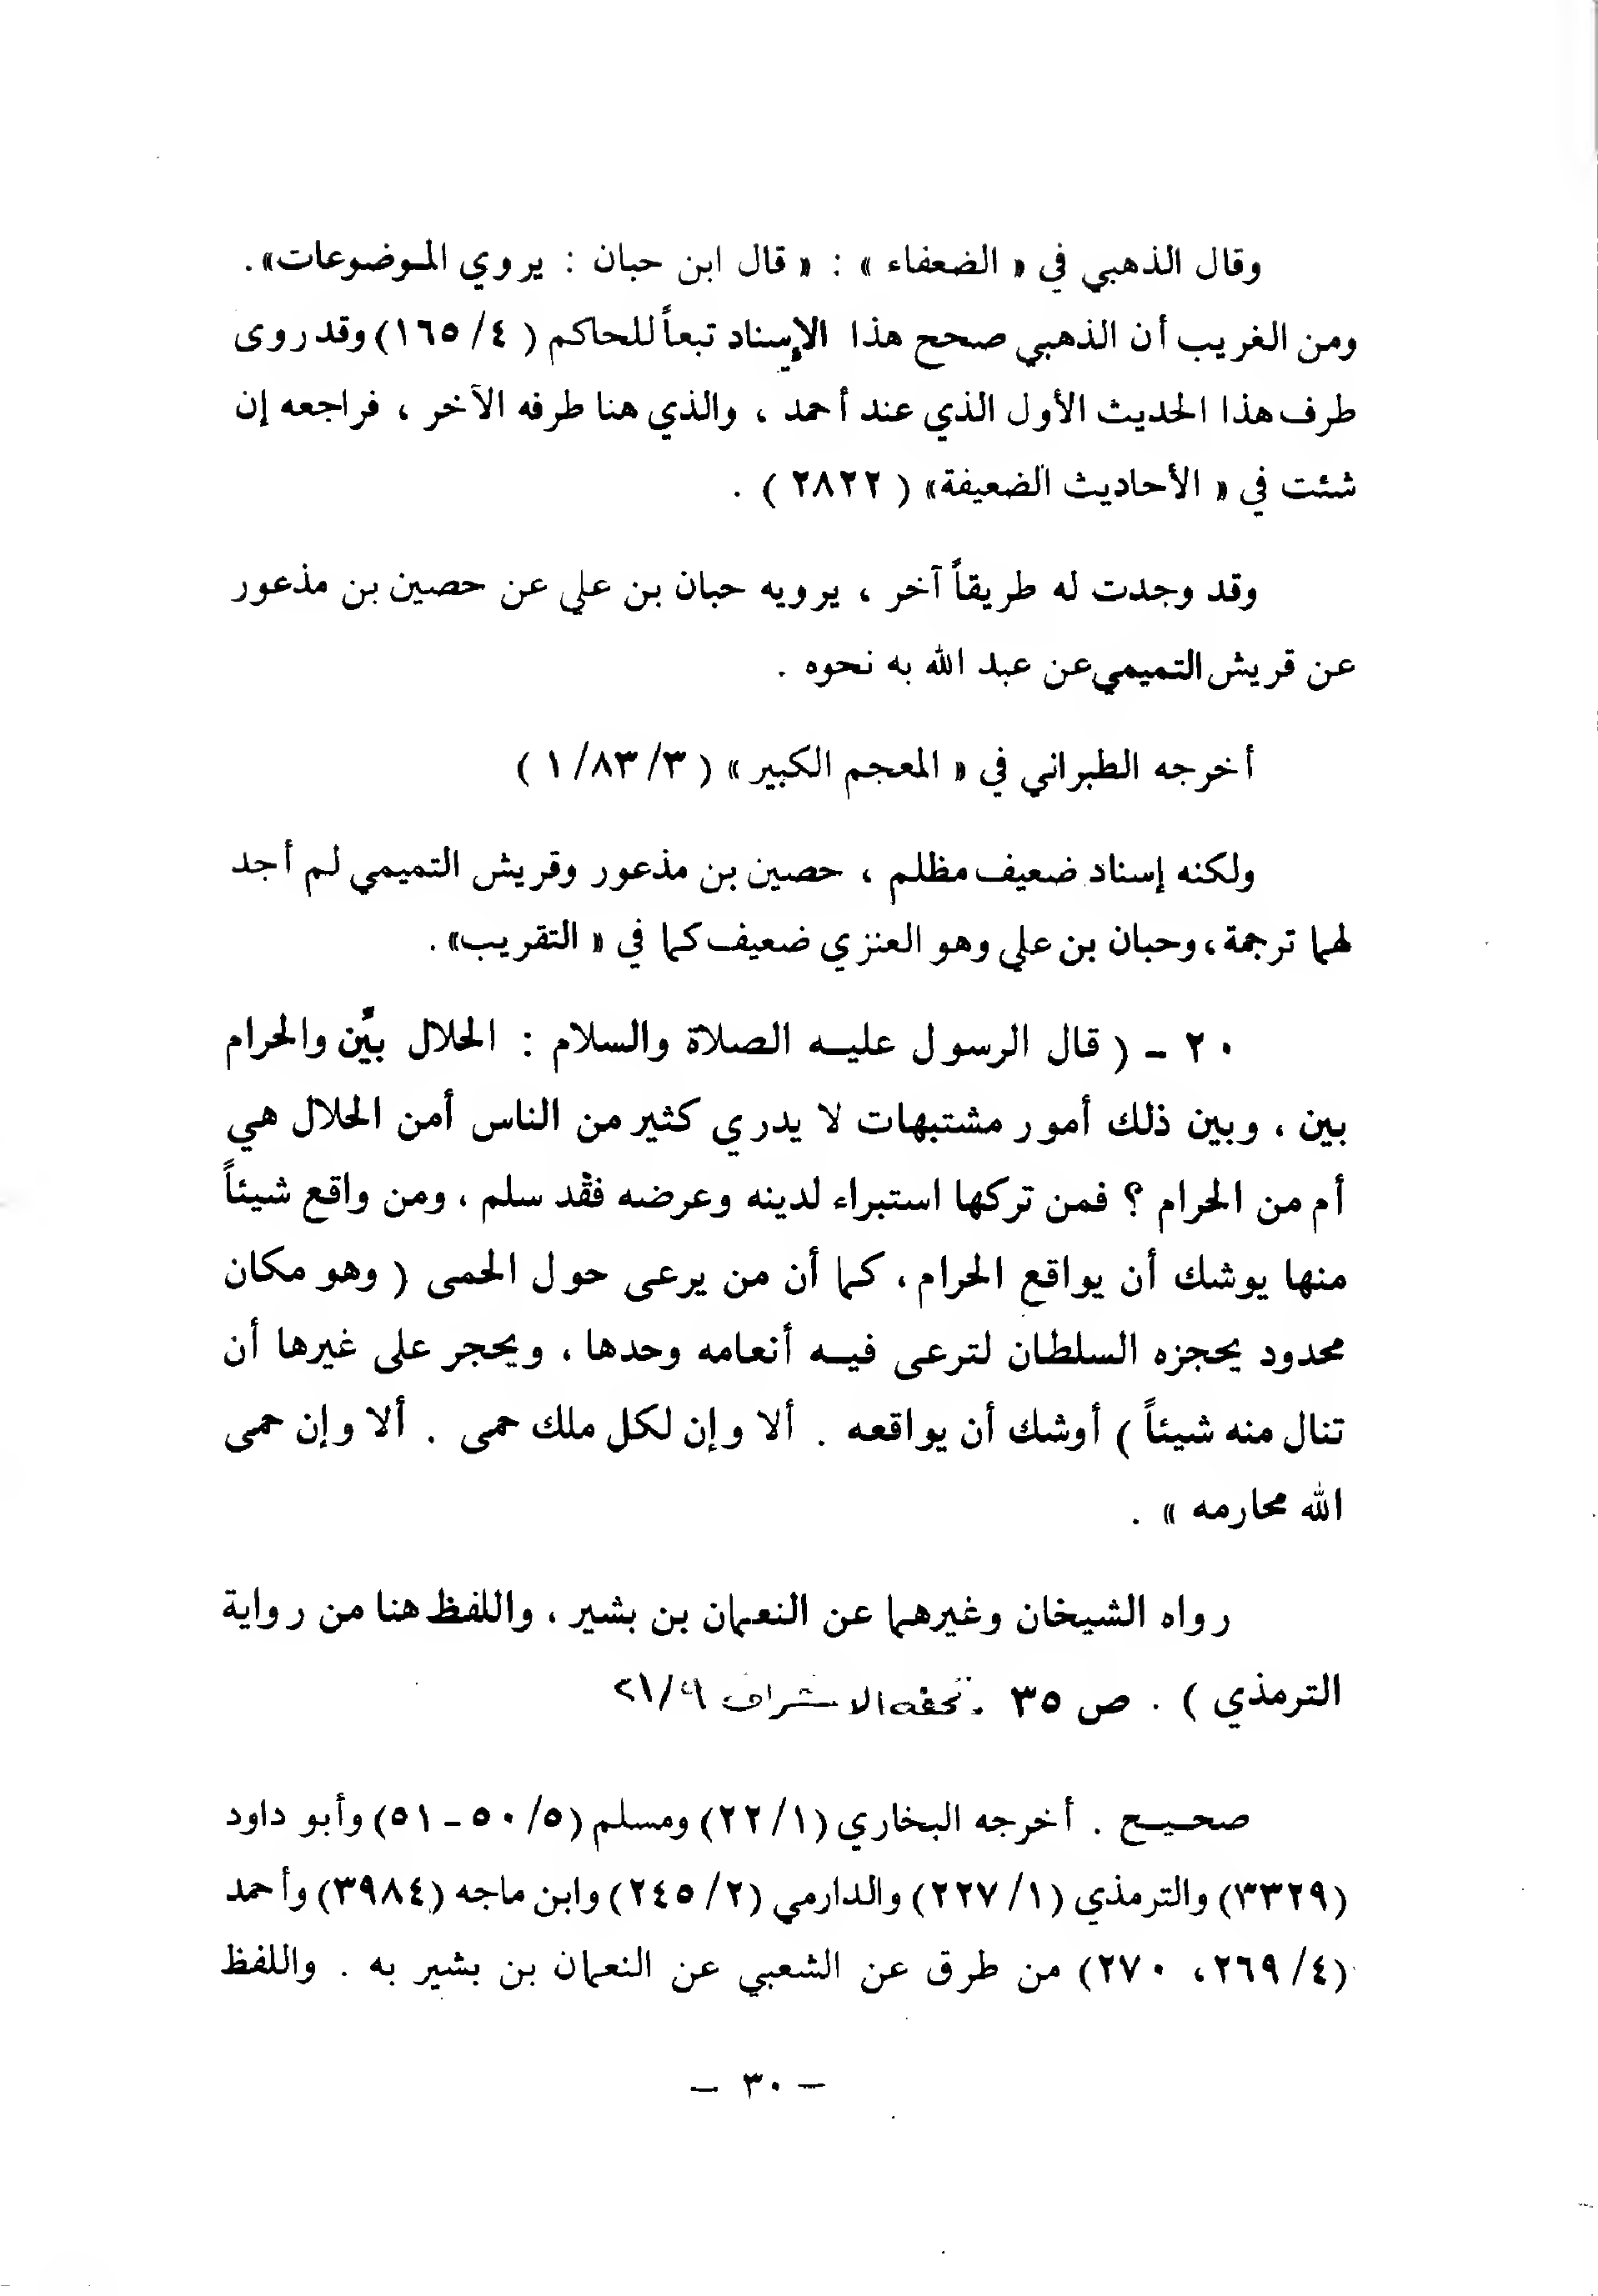 وقال الذهبي في « الضعفاء » : « قال ابن حبان : يروي الموضوعات».
ومن الغريب أن الذهبي صحح هذا الإسناد تبعاً للحاكم ( ٤/ ١٦٥) وقد روى
طرف هذا الحديث الأول الذي عند أحمد ، والذي هنا طرفه الآخر ، فراجعه إن
شئت في « الأحاديث الضعيفة» ( ٢٨٢٢ ) .
وقد وجدت له طريقاً آخر ، يرويه حبان بن علي عن حصين بن مذعور
عن قريش التميمي عن عبد الله به نحوه .
أخرجه الطبراني في « المعجم الكبير » ( ٣/ ٨٣/ ١ )
ولكنه إسناد ضعيف مظلم ، حصين بن مذعور وقريش التميمي لم أجد
لهما ترجمة ، وحبان بن علي وهو العنزي ضعيف كما في « التقريب» .
٢٠ - ( قال الرسول عليه الصلاة والسلام : الحلال بيِّن والحرام
بين ، وبين ذلك أمور مشتبهات لا يدري كثير من الناس أمن الحلال هي
أم من الحرام ؟ فمن تركها استبراء لدينه وعرضه فقد سلم ، ومن واقع شيئاً
منها يوشك أن يواقع الحرام ، كما أن من يرعى حول الحمى ( وهو مكان
محدود يحجزه السلطان لترعى فيه أنعامه وحدها ، ويحجر على غيرها أن
تنال منه شيئاً ) أوشك أن يواقعه . ألا وإن لكل ملك حمى . ألا وإن حمى
الله محارمه » .
رواه الشيخان وغيرهما عن النعمان بن بشير ، واللفظ هنا من رواية
الترمذي ) . ص ٣٥ . تحفة الاشراف ٢١/٩
صحيح . أخرجه البخاري (١/ ٢٢) ومسلم (٥/ ٥٠ - ٥١) وأبو داود
(٣٣٢٩) والترمذي (١/ ٢٢٧) والدارمي (٢/ ٢٤٥) وابن ماجه (٣٩٨٤) وأحمد
(٤/ ٢٦٩، ٢٧٠) من طرق عن الشعبي عن النعمان بن بشير به . واللفظ
– ٣٠ –